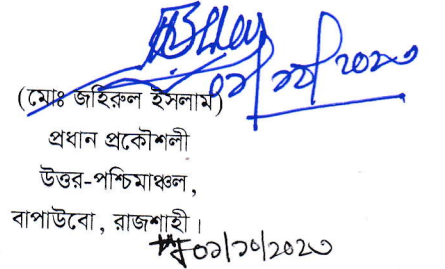 ০১/১০/২০২৩
(মোঃ জহিরুল ইসলাম)
প্রধান প্রকৌশলী
উত্তর-পশ্চিমাঞ্চল,
বাপাউবো, রাজশাহী।
০১/১০/২০২৩